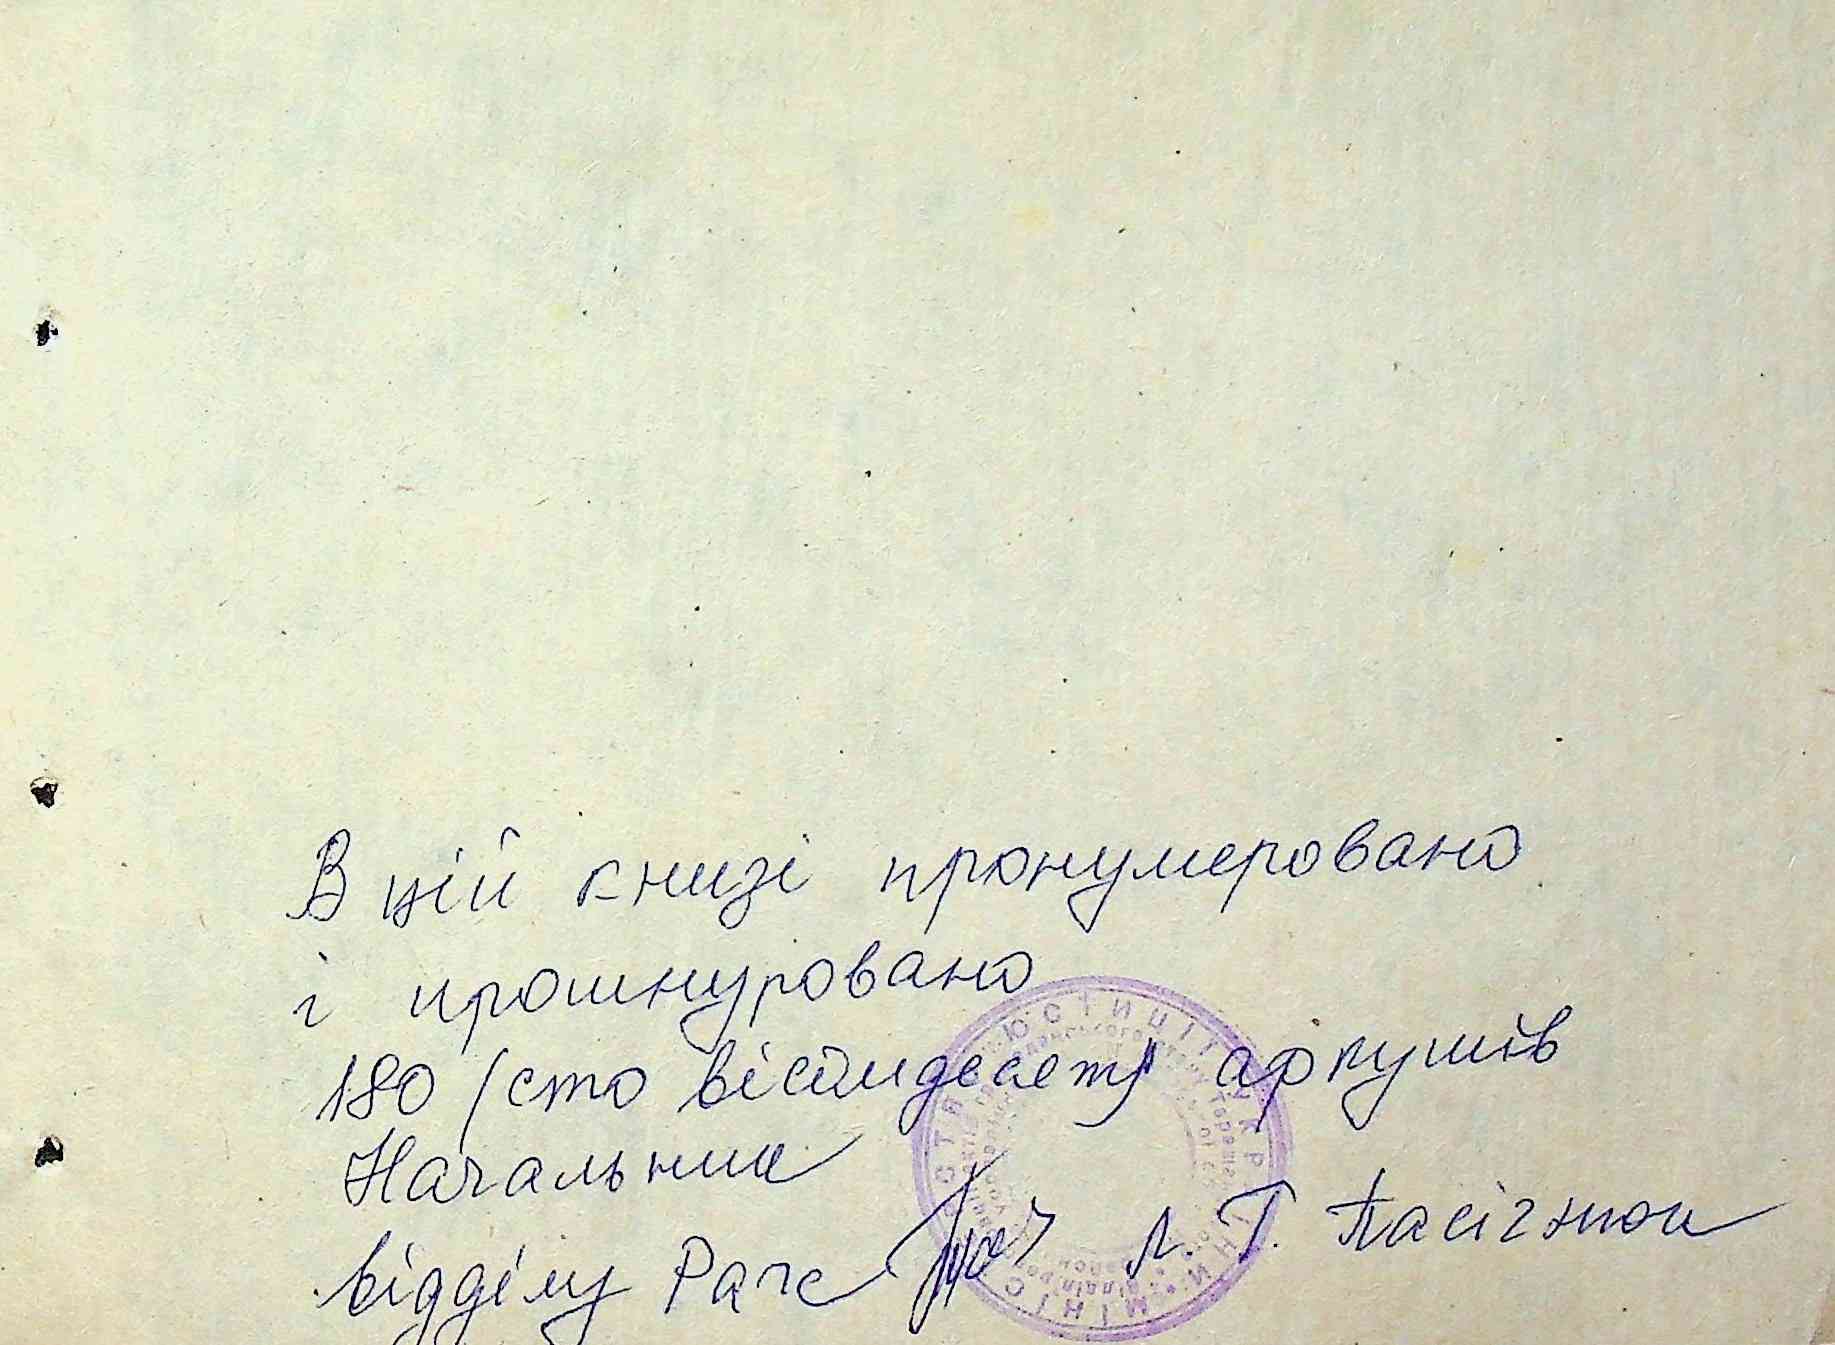 В цій книзі пронумеровано
і прошнуровано
180 /сто вісімдесят/ аркушів
Начальник
відділу Рагс Л. Т. Пасічнюк
МІНІСТЕРСТВО ЮСТИЦІЇ УКРАЇНИ